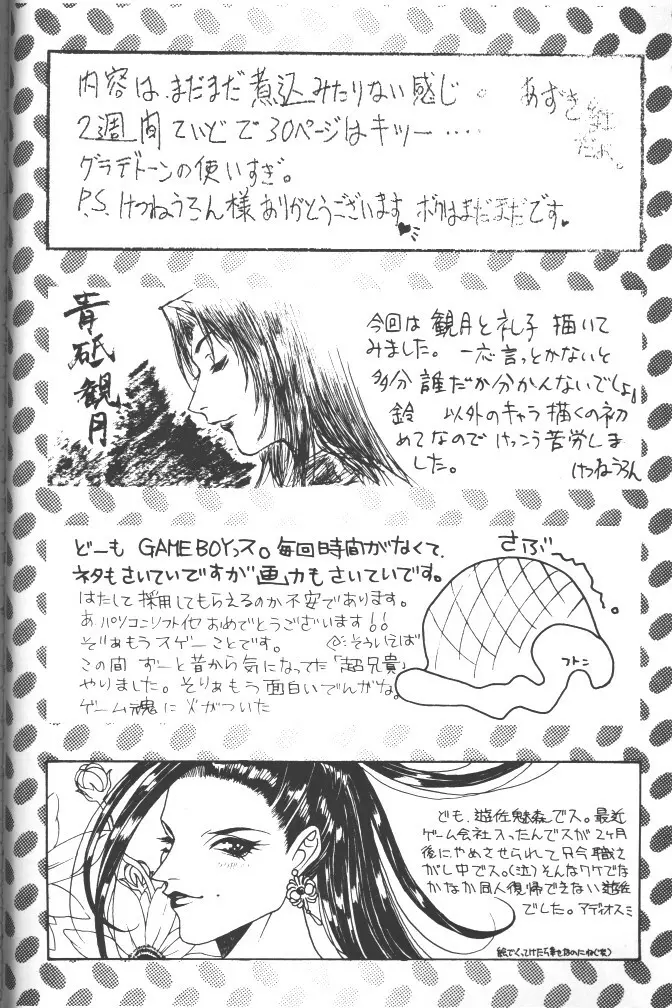 内容は、まだまだ煮込みたりない感じ。
2週間ていどで30ページはキツー‥‥
グラデトーンの使いすぎ。
P.S. けつねうろん様ありがとうございます ボクはまだまだです。
あずき
だよ。
青砥観月
今回は観月と礼子描いて
みました。一応言っとかないと
多分誰だか分かんないでしょ。
鈴 以外のキャラ描くの初
めてなのでけっこう苦労しま
した。 けつねうろん
どーも GAMEBOYっス。毎回時間がなくて、
ネタもさいていですが画力もさいていです。
はたして採用してもらえるのか不安であります。
あ、パソコンソフトイセおめでとうございます!!
そりぁもうスゲーことです。 そういえば
この間 ずーと昔から気になってた「超兄貴」
やりました。そりぁもう面白いでんがな。
ゲーム魂に火がついた
さぶー
フトン
ども、遊佐魅森でス。最近
ゲーム会社入ったんでスが2ヶ月
後にやめさせられて只今職さ
がし中でス。(泣)そんなワケでな
かなか同人復帰できない遊佐
でした。アディオスミ